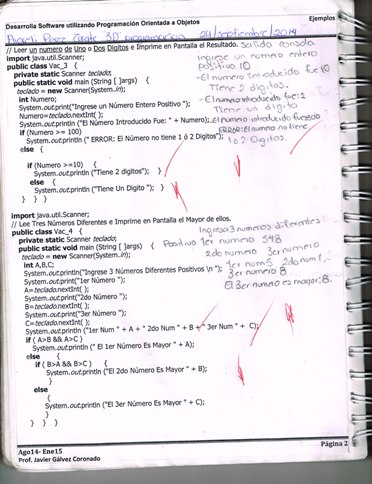 Desarrolla Software utilizando Programación Orientada a Objetos Ejemplos
Perez Zarate 3D programacion 29/septiembre/2014
// Leer un numero de Uno o Dos Digitos e Imprime en Pantalla el Resultado. Salida consola
import java.util.Scanner; Ingrese un Numero entero
public class Vac_3 { positivo 10
private static Scanner teclado; -El numero introducido fue 10
public static void main (String [ ]args) { Tiene 2 digitos.
teclado = new Scanner(System.in);
int Numero; -El numero introducido fue: 2
System.out.print("Ingrese un Número Entero Positivo "); Tiene un digito
Numero=teclado.nextInt( );
System.out.println ("El Número Introducido Fue: " + Numero); El numero introducido fue
if (Numero >= 100) ERROR: El numero no tiene
System.out.println (" ERROR: El Número no tiene 1 ó 2 Digitos"); 1 o 2 Digitos.
else {
if (Numero >=10) {
System.out.println ("Tiene 2 digitos"); }
else {
System.out.println ("Tiene Un Digito "); }
} } }
import java.util.Scanner;
// Lee Tres Números Diferentes e Imprime en Pantalla el Mayor de ellos.
public class Vac_4 { Ingresa 3 numeros diferentes
private static Scanner teclado;
public static void main (String [ ]args) { Positivo 1er numero 548
teclado = new Scanner(System.in); 2do numero 3er numero
int A,B,C; 1er num 5 2do num 1,
System.out.println("Ingrese 3 Números Diferentes Positivos \n "); 3er numero 8
System.out.print("1er Número "); El 3er numero es mayor: 8.
A=teclado.nextInt( );
System.out.print("2do Número ");
B=teclado.nextInt( );
System.out.print("3er Número ");
C=teclado.nextInt( );
System.out.println ("1er Num " + A + " 2do Num " + B + " 3er Num " + C);
if ( A>B && A>C )
System.out.println (" El 1er Número Es Mayor " + A);
else {
if ( B>A && B>C ) {
System.out.println ("El 2do Número Es Mayor " + B);
}
else
{
System.out.println ("El 3er Número Es Mayor " + C);
}
} } }
Página 2
Ago14- Ene15
Prof. Javier Gálvez Coronado